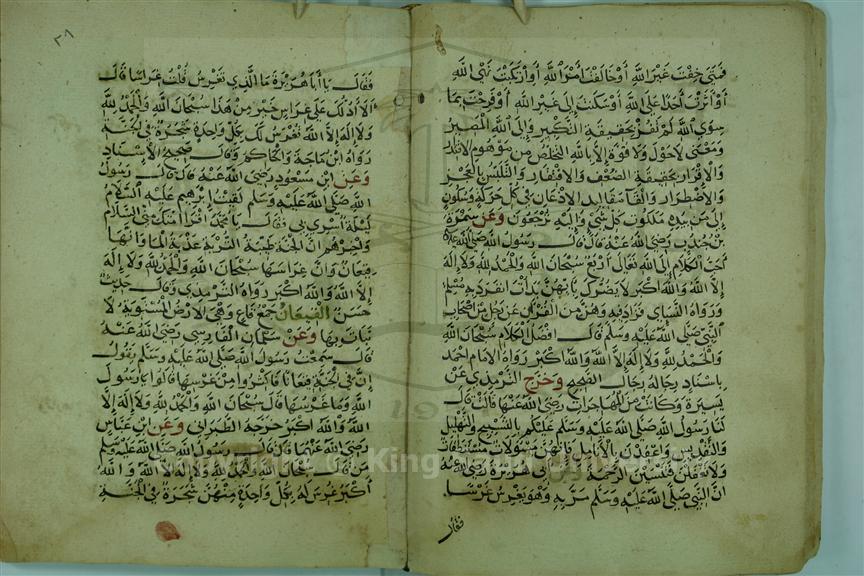 فمتى خفت غير الله أو خالفت أمر الله أو ارتكبت نهي الله
أو آثرت أحدا على الله أو سكنت إلى غير الله أو فرحت بما
سوى الله لم تفز بحقيقة التكبير وإلى الله المصير
ومعنى لا حول ولا قوة إلا بالله التخلص من موهوم الاقتدار
والاقرار بحقيقة الضعف والافتقار والتلبس بالعجز
والاضطرار والقاء مقاليد الاذعان في كل حركة وسكون
إلى من بيده ملكوت كل شيء وإليه ترجعون وعن سمرة
بن جندب رضي الله عنه قال قال رسول الله صلى الله عليه
أحب الكلام إلى الله تعالى أربع سبحان الله والحمد لله ولا إله
إلا الله والله أكبر لا يضرك بأيهن بدأت انفرد به مسلم
ورواه النسائي فزاد فيه وهن من القرآن عن رجل من أصحاب
النبي صلى الله عليه وسلم قال أفضل الكلام سبحان الله
والحمد لله ولا إله إلا الله والله أكبر رواه الامام احمد
باسناد رجاله رجال الصحيح وخرج الترمذي عن
يسيرة وكانت من المهاجرات رضي الله عنها قالت قال
لنا رسول الله صلى الله عليه وسلم عليكم بالتسبيح والتهليل
والتقديس واعقدن بالأنامل فانهن مسئولات مستنطقات
ولا تغفلن فتنسين الرحمة أبي هريرة رضي الله عنه
ان النبي صلى الله عليه وسلم مر به وهو يغرس غرسا
فقال
٢٩
فقال يا أبا هريرة ما الذي تغرس قلت غراسا قال
ألا أدلك على غراس خير من هذا سبحان الله والحمد لله
ولا إله إلا الله تغرس لك بكل واحدة شجرة في الجنة
رواه ابن ماجة والحاكم وقال صحيح الاسناد
وعن ابن مسعود رضي الله عنه قال قال رسول
الله صلى الله عليه وسلم لقيت ابرهيم عليه السلام
ليلة أسري بي فقال يا محمد اقرا أمتك مني السلام
واخبرهم ان الجنة طيبة التربة عذبة الماء وانها
قيعان وان غراسها سبحان الله والحمد لله ولا إله
إلا الله والله أكبر رواه الترمذي وقال حديث
حسن القيعان جمع قاع وهي الارض المستوية لا
نبات بها وعن سلمان الفارسي رضي الله عنه
قال سمعت رسول الله صلى الله عليه وسلم يقول
إن في الجنة قيعانا فاكثروا من غرسها قالوا يا رسول
الله وما غرسها قال سبحان الله والحمد لله ولا إله إلا
الله والله أكبر خرجه الطبراني وعن ابن عباس
رضي الله عنهما قال قال رسول الله صلى الله عليه وسلم
من قال سبحان الله والحمد لله ولا إله إلا الله والله
أكبر غرس له بكل واحدة منهن شجرة في الجنة